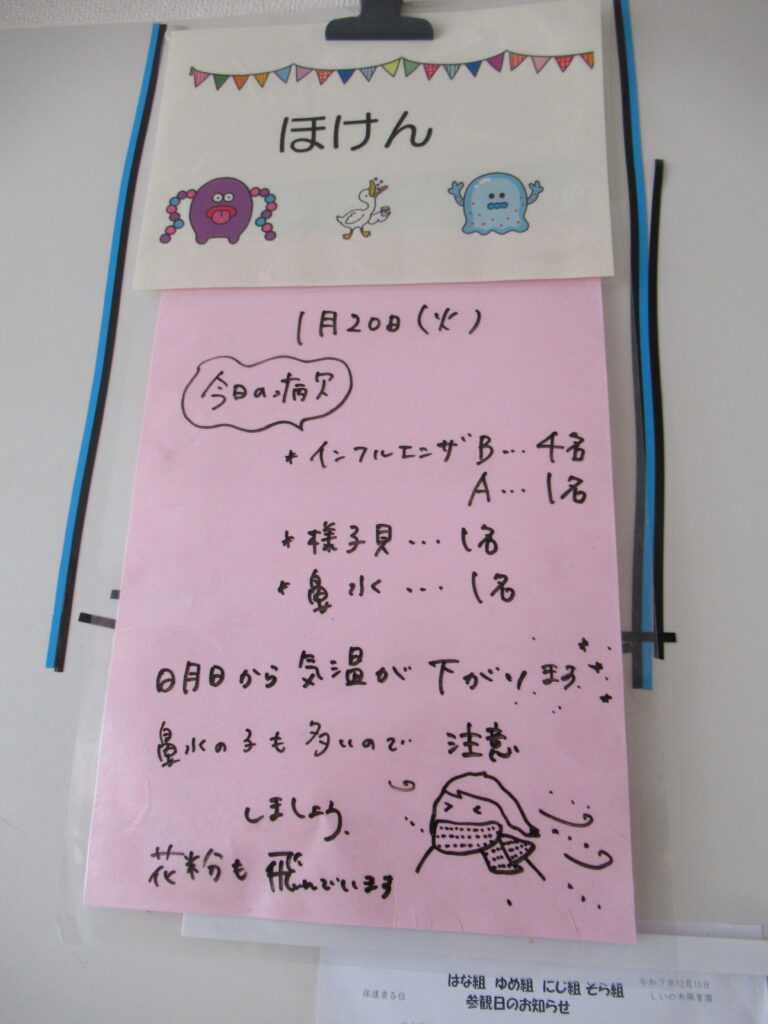 ほけん
1月20日(火)
今日の病欠
* インフルエンザB… 4名
A… 1名
* 様子見… 1名
* 鼻水… 1名
明日から気温が下がります
鼻水の子も多いので 注意
しましょう。
花粉も飛んでいます
はな組 ゆめ組 にじ組 そら組
参観日のお知らせ
保護者各位
令和7年12月16日
しいの木保育園